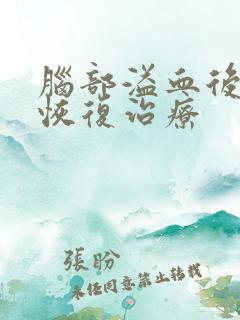 腦部溢血後
恢復治療
張盼
未任同意禁止轉載